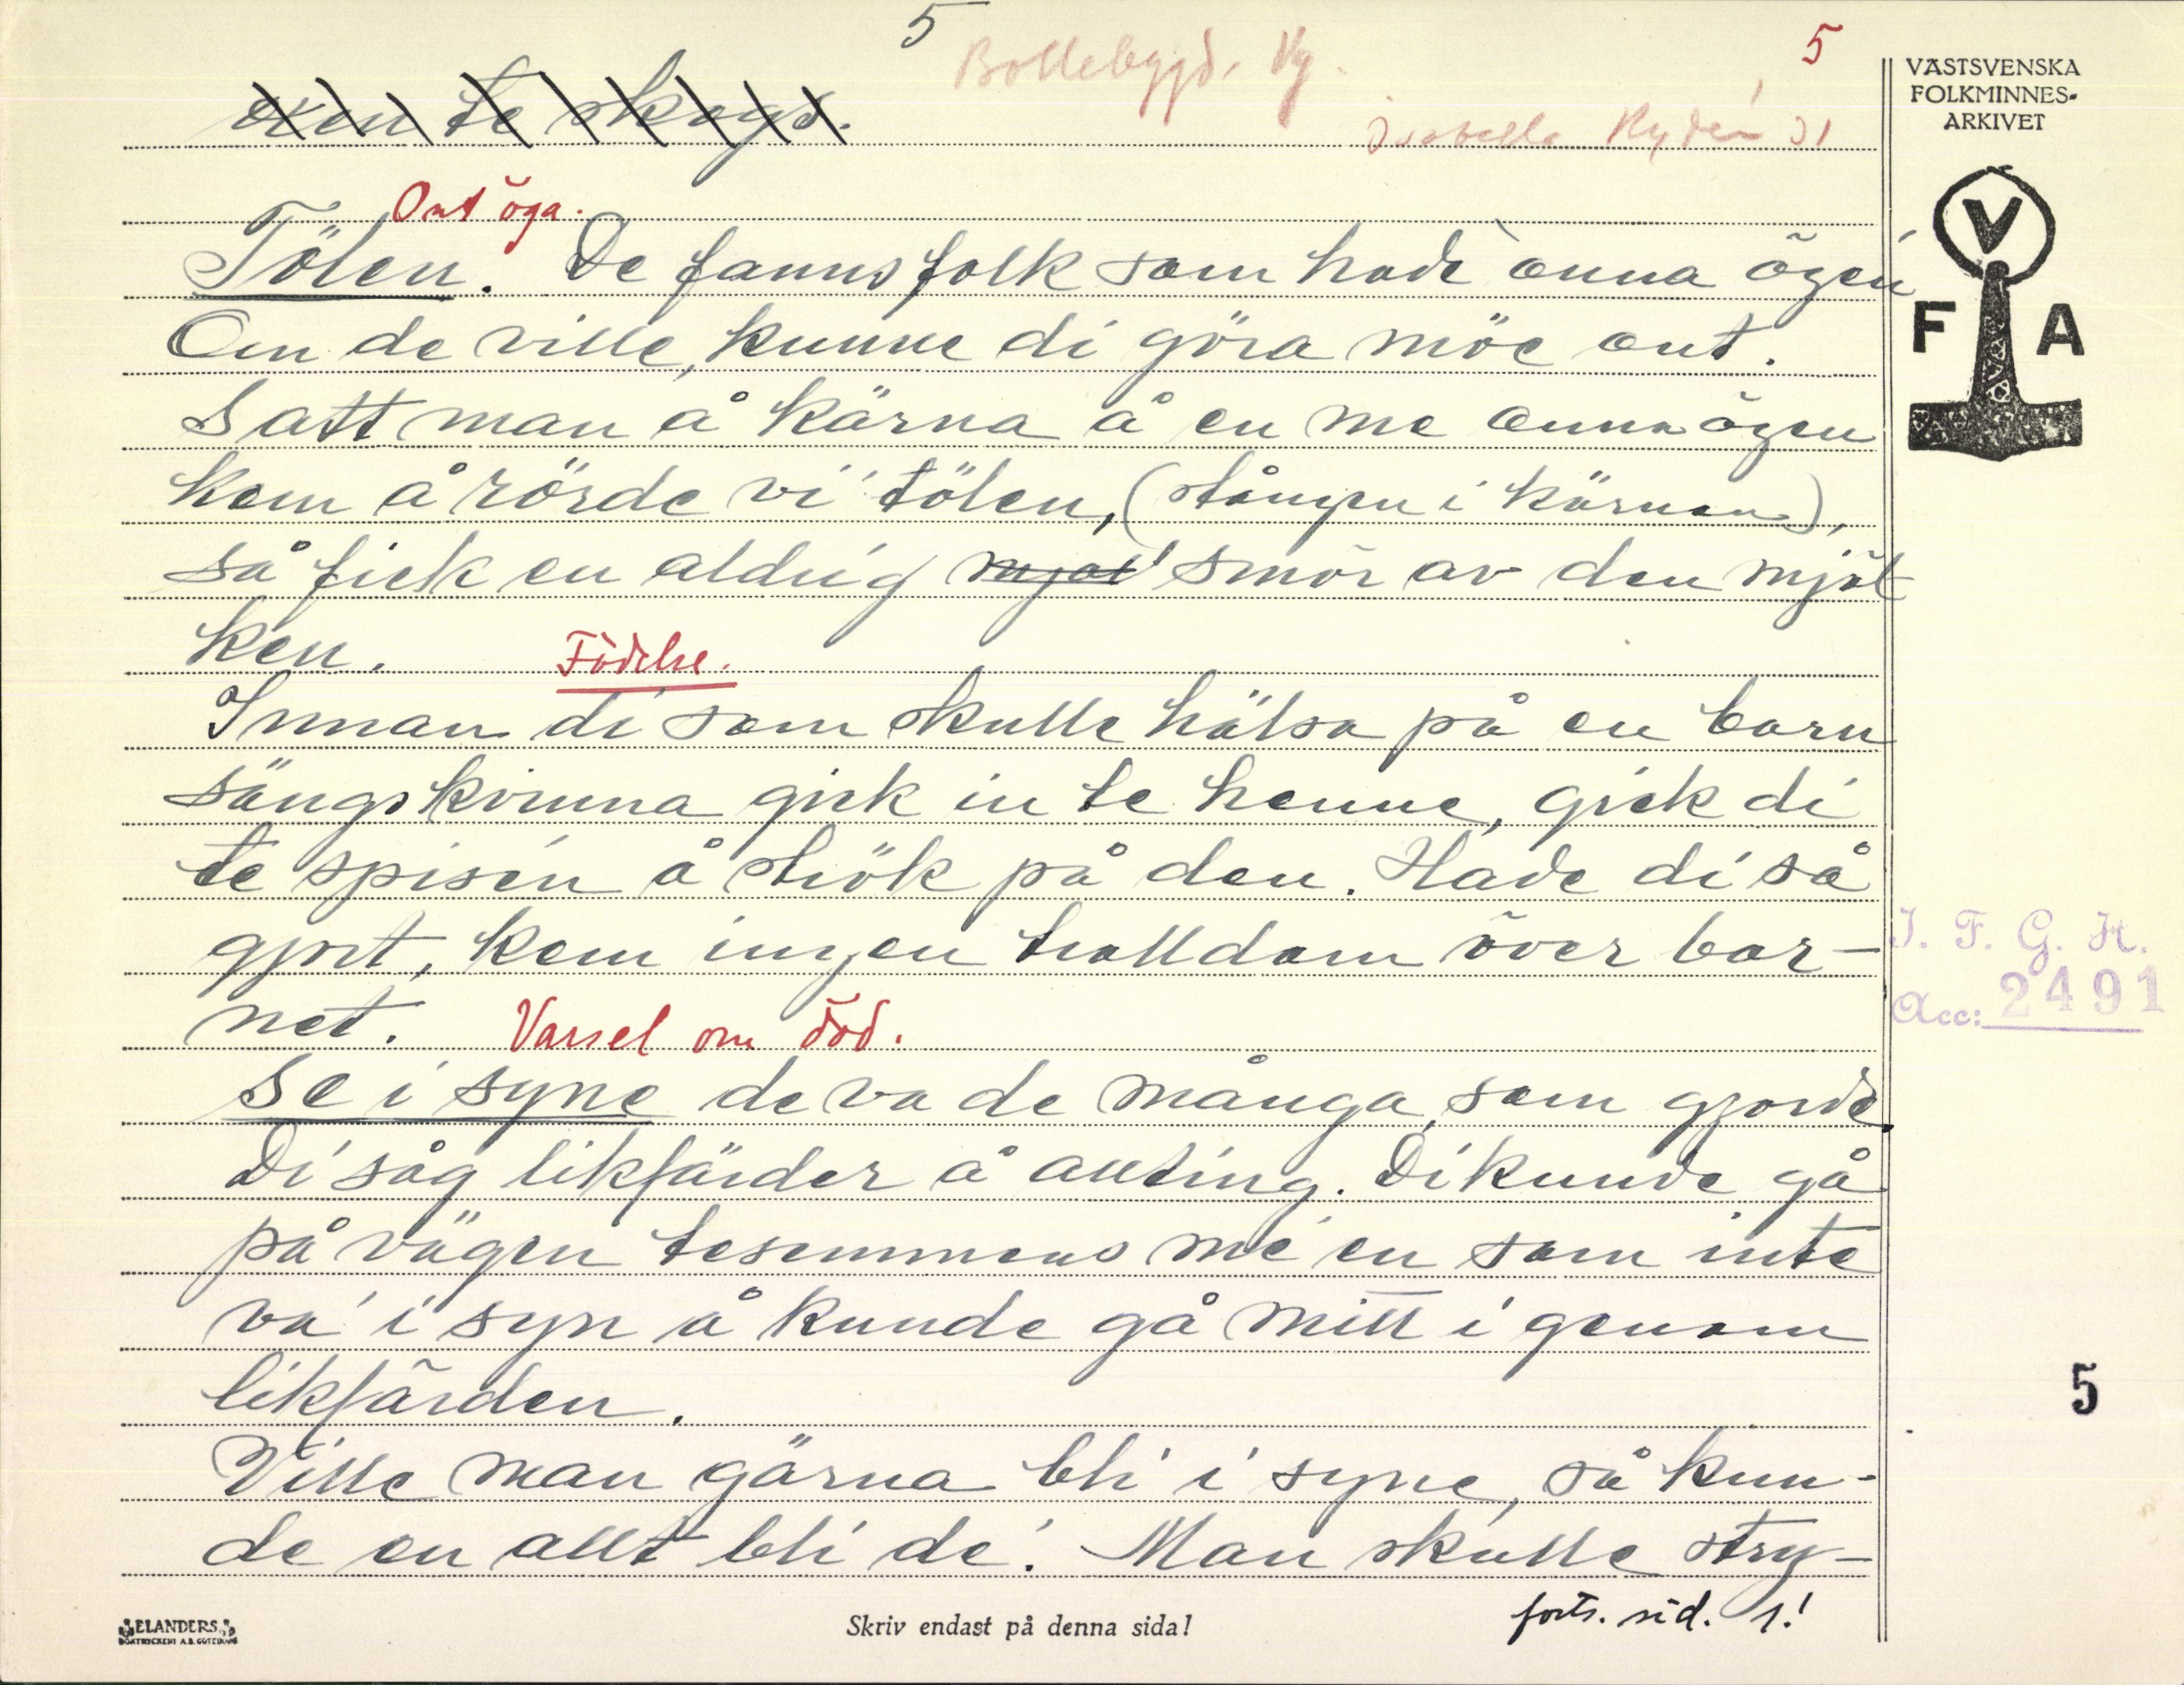 5
Bollebygd. Vg.
5
Isabella Rydén 31
VÄSTSVENSKA
FOLKMINNES-
ARKIVET
V
F A
te skogs.
Ont öga.
Tölen. De fanns folk som hade onna ögen
Om de ville, kunne di göra möe ont.
Satt man å kärna å en me onna ögen
kom å rörde vi tölen, (stången i kärnan),
så fick en aldrig mjöl smör av den mjöl
ken.
Födelse.
Innan di som skulle hälsa på en barn
sängskvinna gick in te henne, gick di
te spisen å stök på den. Hade di så
gjort, kom ingen trolldom över bar-
net.
Varsel om död.
Se i syne de va de många, som gjorde.
Di såg likfärder å allting. Di kunde gå
på vägen tesemmens me en som inte
va' i syn å kunde gå mitt i genom
likfärden.
Ville man gärna bli i syne, så kun-
de en allt bli de. Man skulle stry-
forts. sid. 1!
I. F. G. H.
Acc: 2491
5
ELANDERS
BOKTRYCKERI A.B. GÖTEBORG
Skriv endast på denna sida!